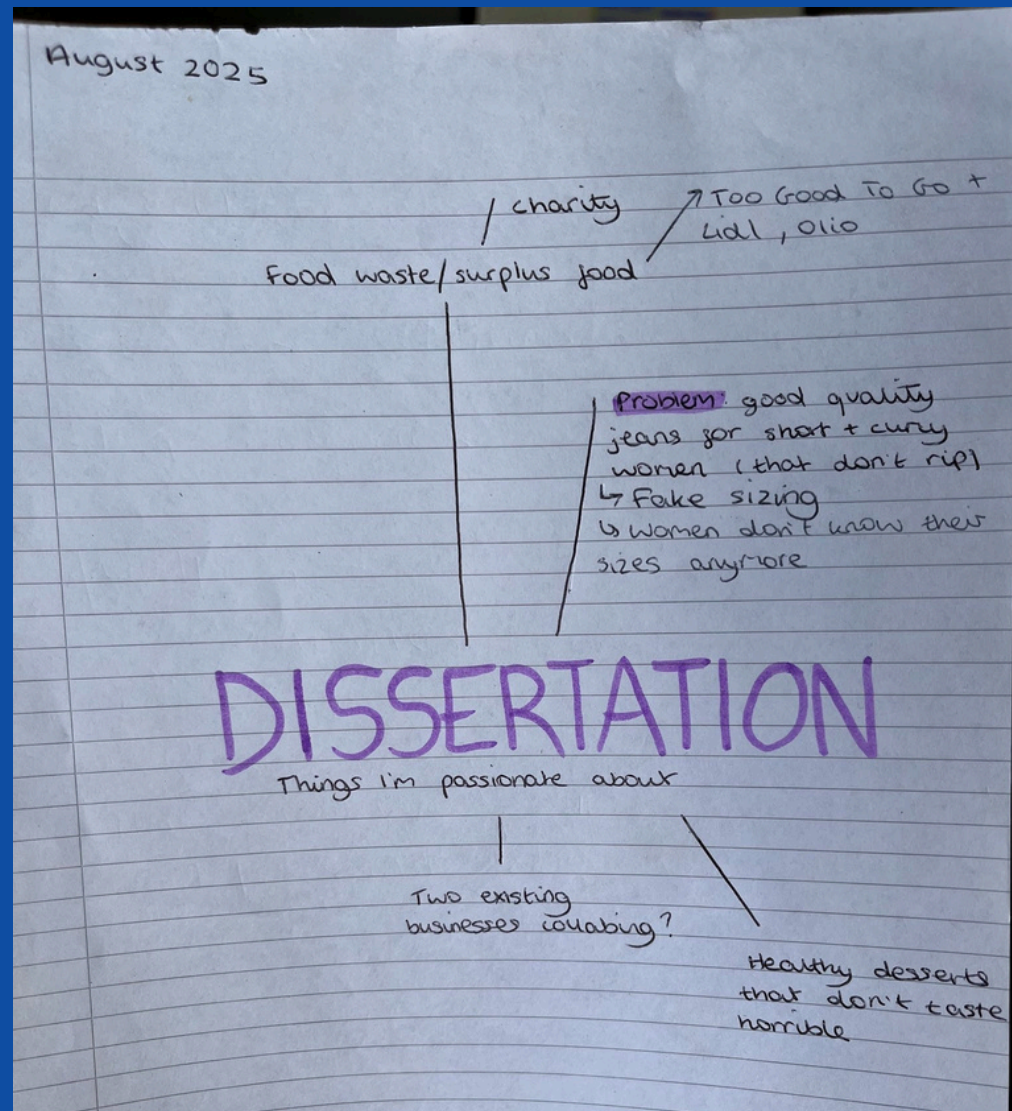 August 2025
charity
Too Good To Go +
Lidl, Olio
Food waste/surplus food
Problem: good quality
jeans for short + curvy
women (that don't rip)
↳ Fake sizing
↳ women don't know their
sizes anymore
DISSERTATION
Things I'm passionate about
Two existing
businesses collabing?
Healthy desserts
that don't taste
horrible